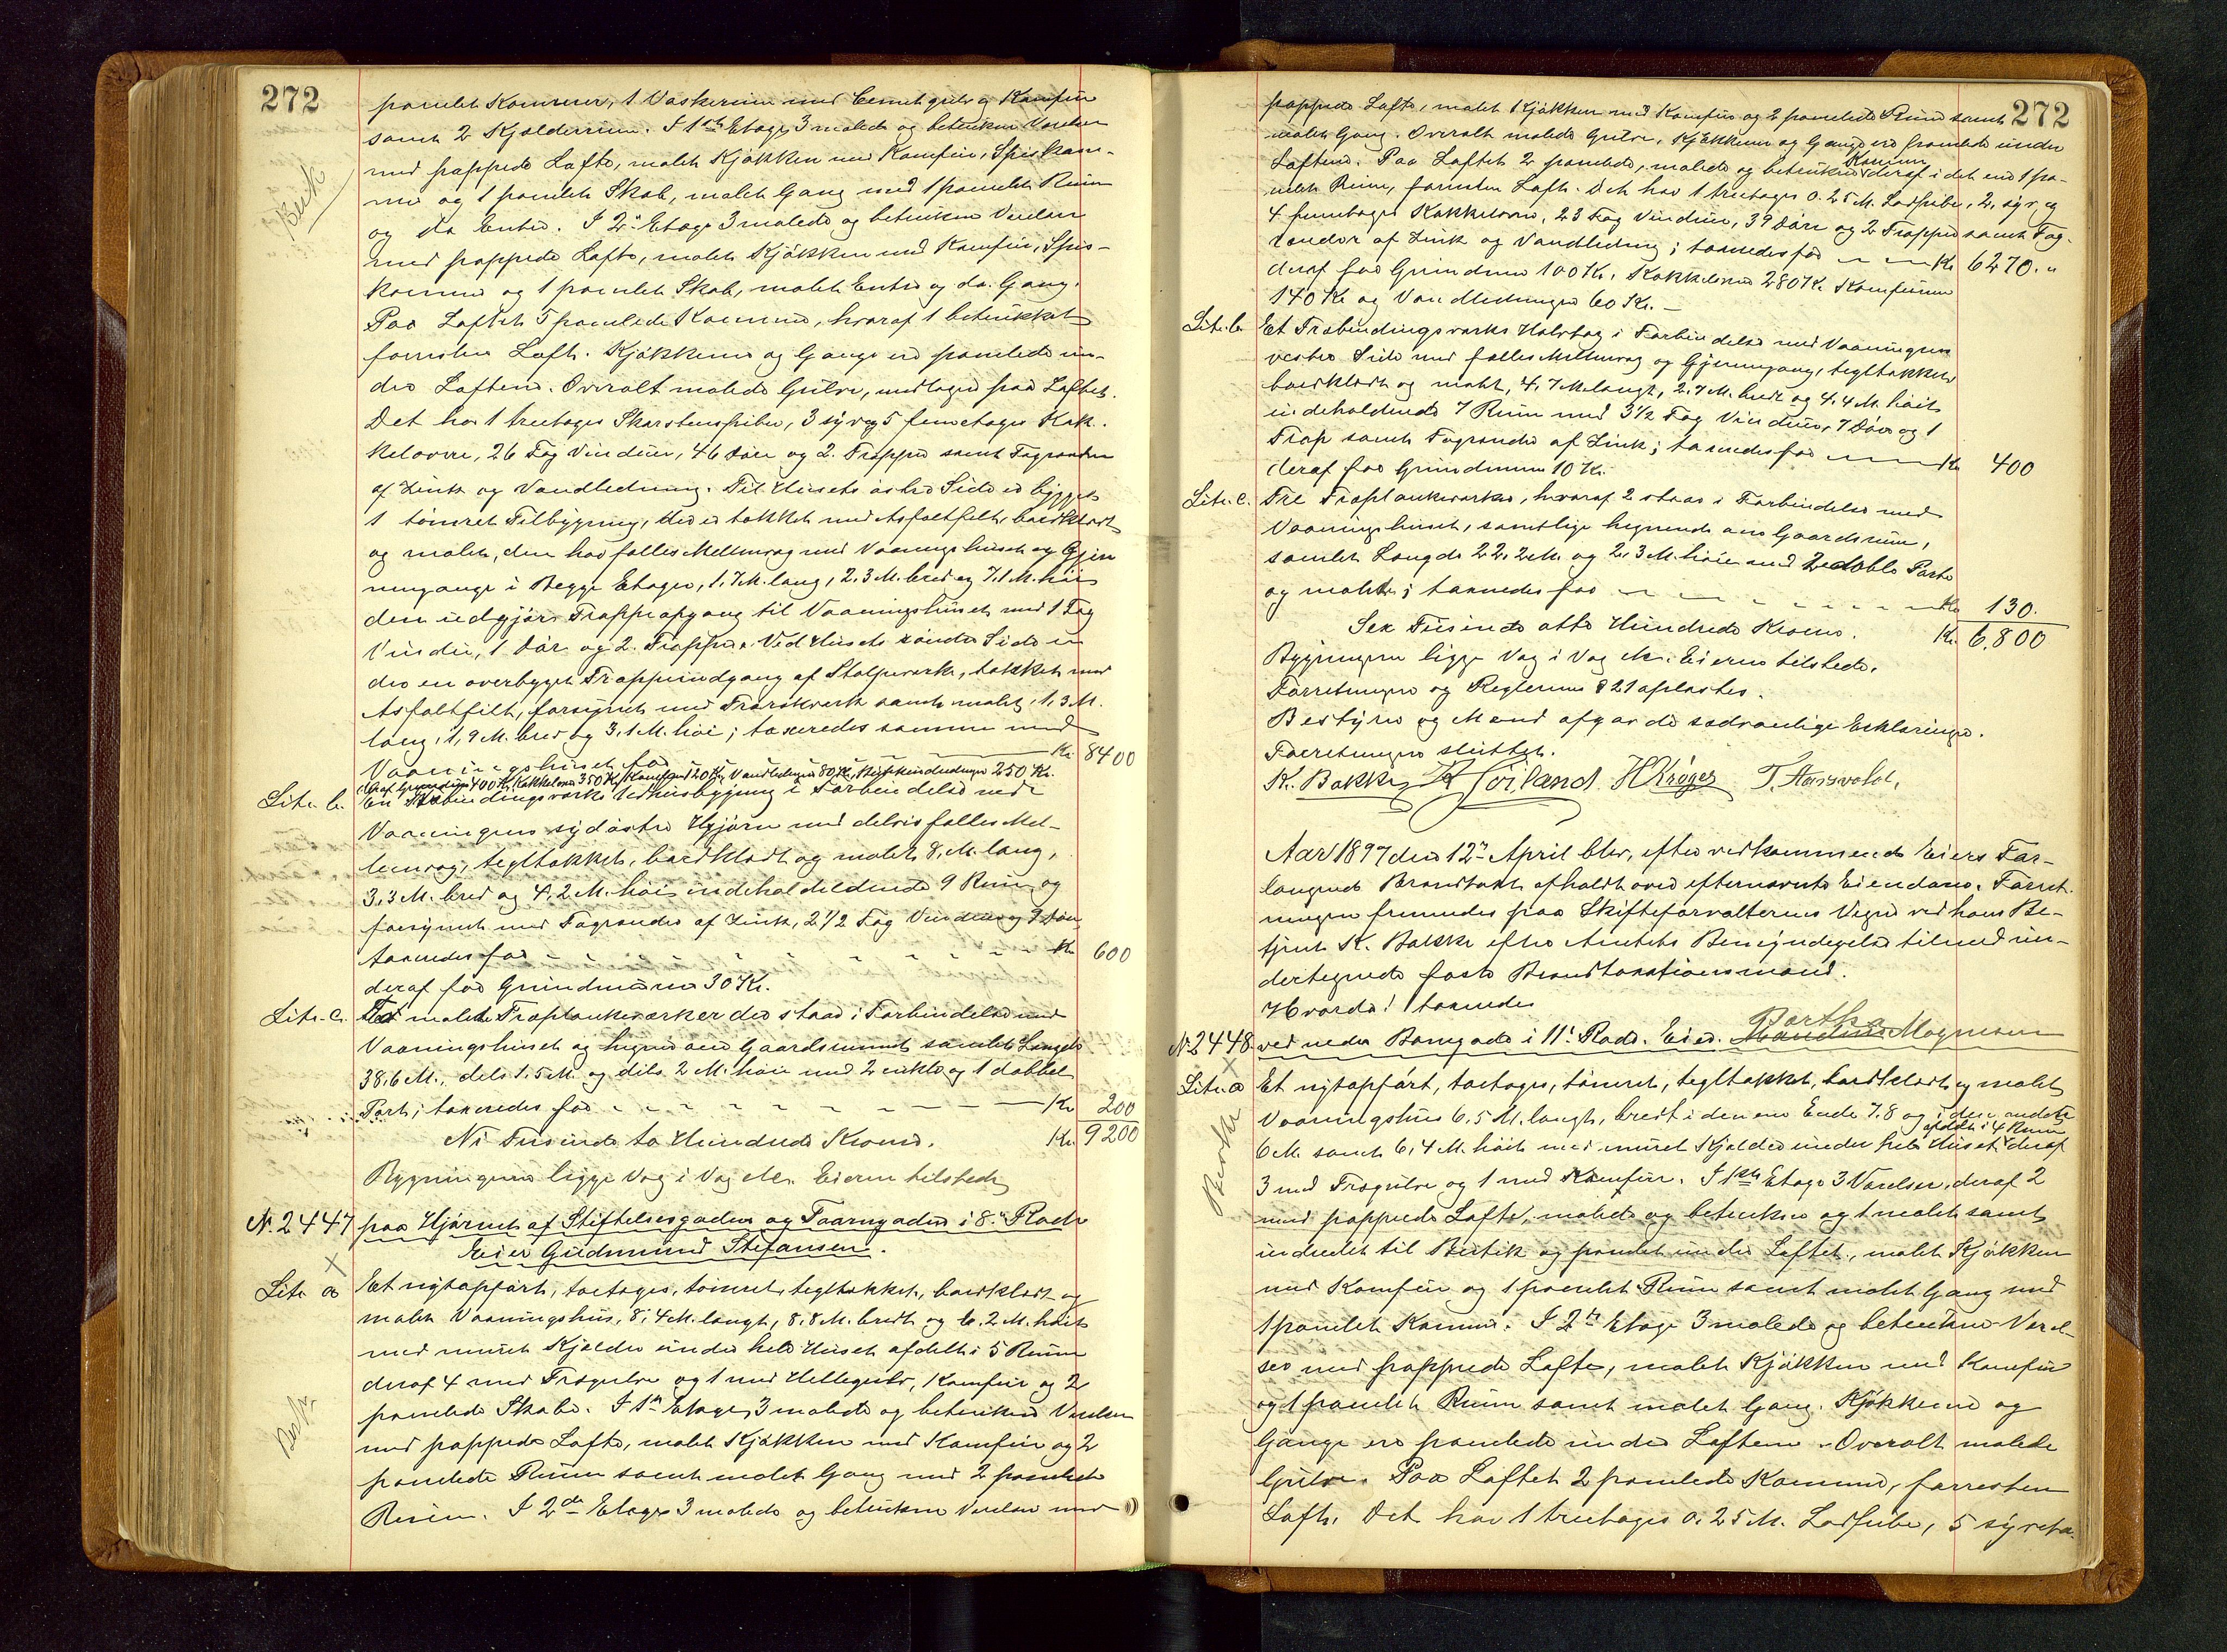 272
panelet Kammer, 1 Vaskerum med Cementgulv og Komfur
samt 2 Kjælderrum. I 1ste Etage 3 malede og betrukne Værelser
med pappede Lofte, malet Kjøkken med Komfur, Spiskam-
mer og 1 panelet Skab, malet Gang med 1 panelet Rum
og do Entre. I 2n Etage 3 malede og betrukne Værelser
med pappede Lofte, malet Kjøkken med Komfur, Spis-
kammer og 1 panelet Skab, malet Entre og do. Gang.
Paa Loftet 5 panelede Kammere, hvoraf 1 betrukket
forresten Loft. Kjøkkene og Gange ere panelede un-
der Loftene. Overalt malede Gulve, undtagen paa Loftet.
Det har 1 treetages Skorstenspibe, 3 syv og 5 femetages Kak-
kelovne, 26 Fag Vinduer, 46 Døre og 2. Trapper samt Tagrender
af Zink og Vandledning. Til Husets østre Side er bygget
1 tømret Tilbygning, der er tækket med Asfaltfilt, bordklædt
og malet, den har fælles Mellemvæg med Vaaningshuset og Gjen
nemgange i Begge Etager, 1,7 M. lang, 2,3 M. bred og 7,1 M. høi
den udgjør Trappeopgang til Vaaningshuset med 1 Fag
Vinduer, 1 Dør og 2. Trapper. Ved Husets søndre Side er
der en overbygget Trappeindgang af Stolpeværk, tækket med
Asfaltfilt, forsynet med Træværk samt malet, 1,3 M.
lang, 1,9 M. bred og 3,1 M. høi; taxeredes sammen med
Vaaningshuset for Kr. 8400
deraf Grundmur 400 Kr, Kakkelovne 350 Kr, Komfurer 120 Kr, Vandledningen 80 Kr, 250 Kr.
Litr. b. En Træbindingsværks Udhusbygning i Forbindelse med
Vaaningens sydøstre Hjørne med delvis fælles Mel-
lemvæg, tegltækket, bordklædt og malet, 8, M. lang,
3,3 M. bred og 4,2 M. høi indeholdeldende 9 Rum og
forsynet med Tagrender af Zink, 2 1/2 Fag Vinduer og 9 Døre
taxeredes for Kr. 600
deraf for Grundmuren 30 Kr.
Litr. c. malede Træplankeværker der staar i Forbindelse med
Vaaningshuset og hegner om Gaardsrummet samlet Længde
38,6 M., dels 1,5 M. og dels 2 M. høie med 2 enkle og 1 dobbel
Port; taxeredes for Kr 200
Ni Tusinde to Hundrede Kroner. Kr. 9200
Bygningerne ligge Væg i Væg M. Eieren tilstede
N. 2447 paa Hjørnet af Stiftelsesgaden og Taarngaden i 8.' Rode
Eier Gudmund Stefansen.
Litr a Et nyt opført, toetages, tømret, tegltækket, bordklædt og
malet Vaaningshus, 8,4 M. langt, 8,8 M. bredt og 6.2 M. høit
med muret Kjelder under hele Huset afdelt i 5 Rum
deraf 4 med Trægulve og 1 med Hellegulv, Komfur og 2
panelede Skabe. I 1n Etage 3 malede og betrukne Værelser
med pappede Lofte, malet Kjøkken med Komfur og 2
panelede Rum samt malet Gang med 2 panelede
Rum. I 2den Etage 3 malede og betrukne Værelser med
272
pappede Lofte, malet Kjøkken med Komfur og 2 panelede Rum samt
malet Gang. Overalt malede Gulve, Kjøkkene og Gange ere panelede under
Loftene. Paa Loftet 2 panelede, malede og betrukne Kammere deraf i det ene 1 pa-
nelet Rum, forresten Loft. Det har 1 treetages 0.25 M. Lodpibe, 2, syv og
4 femetages Kakkelovne, 23 Fag Vinduer, 39 Døre og 2 Trapper samt Tag-
render af Zink og Vandledning; taxeredes for Kr 6270.
deraf for Grundmuren 100 Kr, Kakkelovne 280 Kr. Komfurerne
140 Kr og Vandledningen 60 Kr. -
Litr. b. Et Træbindingsværks Halvtag i Forbindelse med Vaaningens
vestre Side med fælles Mellemvæg og Gjennemgang, tegltækket
bordklædt og malet, 4,7 M. langt, 2,7 M. bredt og 4.4 M. høit
indeholdende 7 Rum med 3 1/2 Fag Vinduer, 7 Døre og 1
Trap samt Tagrender af Zink; taxeredes for Kr 400
deraf for Grundmuren 10 Kr.
Litr. c. Tre Træplankeværker, hvoraf 2 staar i Forbindelse med
Vaaningshuset, samtlige hegnende om Gaardsrum,
samlet Længde 22,2 M. og 2,3 M. høie med 2 doble Porte
og malede; taxeredes for Kr 130.
Sex Tusinde otte Hundrede Kroner. Kr. 6,800
Bygningerne ligge Væg i Væg M. Eieren tilstede.
Forretningen og Reglernes § 21 oplæstes.
Bestyrer og Mænd afgav de sædvanlige Erklæringer.
Forretningen sluttet.
K. Bakke H Krøger
Aar 1897 den 12n April blev, efter vedkommende Eiers For-
langende Brandtaxt afholdt over efternævnte Eiendomme. Forret-
ningen fremmedes paa Skifteforvalterens Vegne ved hans Be-
tjent K. Bakke efter Amtets Bemyndigelse tilmed un-
dertegnede faste Brandtaxationsmænd.
Hvorda! taxeredes
N 2448 ved nedre Bangade i 11' Rode. Eier. Bertha Magnesen
Litr. a Et nyt opført, toetages, tømret, tegltækket, bordklædt og malet
Vaaningshus 6,5 M. langt, bredt i den ene Ende 7.8 og i den anden
6 M. samt 6,4 M. høit med muret Kjelder under hele Huset afdelt i 4 Rum deraf
3 med Trægulve og 1 med Komfur. I 1ste Etage 3 Værelser, deraf 2
med pappede Lofte, malede og betrukne og 1 malet samt
indredet til Butik og panelet under Loftet, malet Kjøkken
med Komfur og 1 panelet Rum samt malet Gang med
1 panelet Kammer. I 2n Etage 3 malede og betrukne Værel-
ser med pappede Lofte, malet Kjøkken med Komfur
og 1 panelet Rum samt malet Gang. Kjøkkene og
Gange ere panelede under Loftene. Overalt malede
Gulve. Paa Loftet 2 panelede Kammere, forresten
Loft. Det har 1 treetages 0,25 M. Lodpibe, 5 syveta-